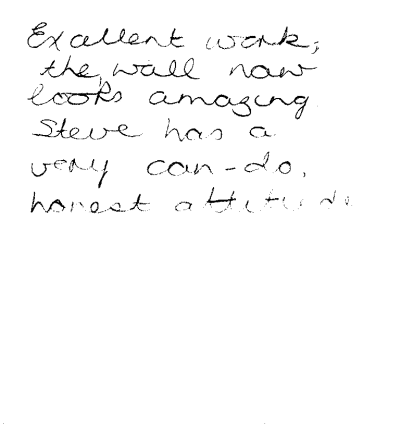 Excellent work;
the wall now
looks amazing.
Steve has a
very can-do,
honest attitude